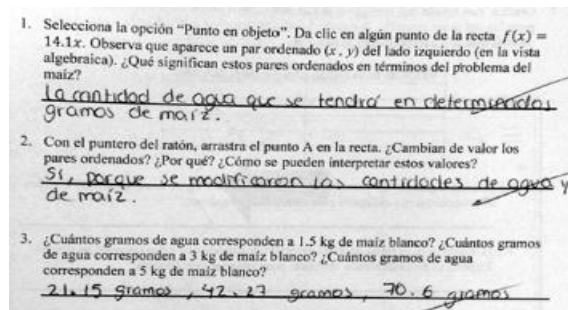 1. Selecciona la opción “Punto en objeto”. Da clic en algún punto de la recta f(x) =
14.1x. Observa que aparece un par ordenado (x, y) del lado izquierdo (en la vista
algebraica). ¿Qué significan estos pares ordenados en términos del problema del
maíz?
La cantidad de agua que se tendrá en determinados
gramos de maíz.
2. Con el puntero del ratón, arrastra el punto A en la recta. ¿Cambian de valor los
pares ordenados? ¿Por qué? ¿Cómo se pueden interpretar estos valores?
Si, porque se modificaron las cantidades de agua y
de maíz.
3. ¿Cuántos gramos de agua corresponden a 1.5 kg de maíz blanco? ¿Cuántos gramos
de agua corresponden a 3 kg de maíz blanco? ¿Cuántos gramos de agua
corresponden a 5 kg de maíz blanco?
21.15 gramos, 42.27 gramos, 70.6 gramos